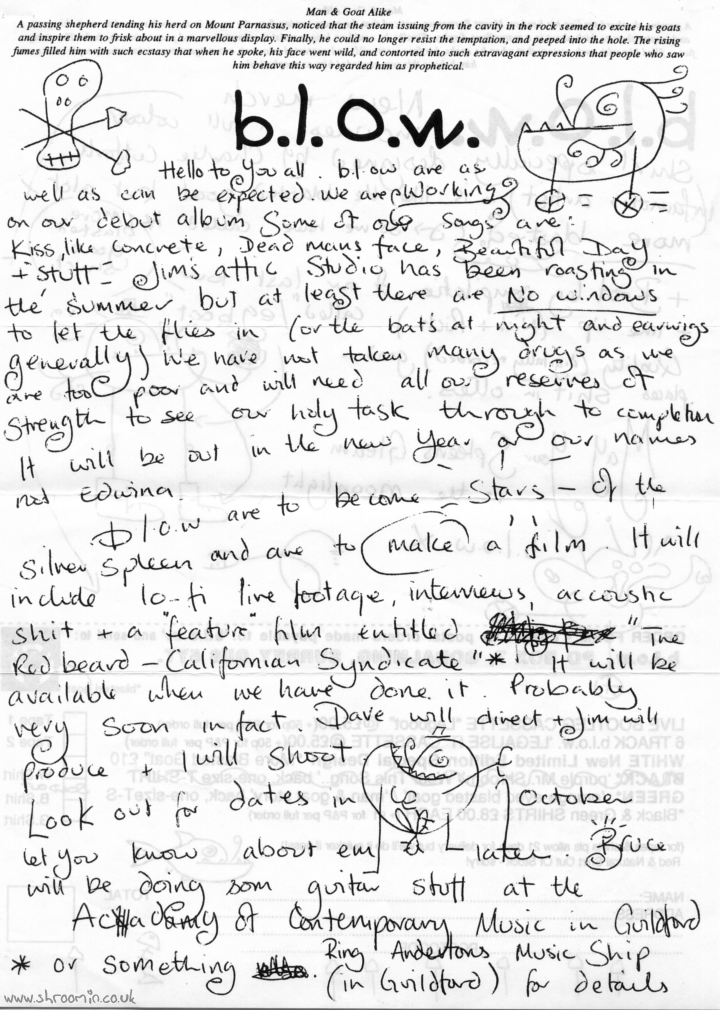 Man & Goat Alike
A passing shepherd tending his herd on Mount Parnassus, noticed that the steam issuing from the cavity in the rock seemed to excite his goats
and inspire them to frisk about in a marvellous display. Finally, he could no longer resist the temptation, and peeped into the hole. The rising
fumes filled him with such ecstasy that when he spoke, his face went wild, and contorted into such extravagant expressions that people who saw
him behave this way regarded him as prophetical.
b.l.o.w.
Hello to you all. b.l.ow are as
well as can be expected. We are working
on our debut album Some of our songs are:
Kiss like concrete, Dead mans face, Beautiful Day
+ stuff - Jim's attic Studio has been roasting in
the summer but at least there are No windows
to let the flies in (or the bats at night and earwigs
generally) We have not taken many drugs as we
are too poor and will need all our reserves of
strength to see our holy task through to completion
It will be out in the new year or our names
not Edwina.
b l o.w are to become - Stars - of the
silver spleen and are to make a film. It will
include lo-fi live footage, interviews, accoustic
shit + a "feature" film entitled "The
Red beard - Californian Syndicate" *. It will be
available when we have done it. Probably
very soon in fact. Dave will direct + Jim will
produce I will shoot
Look out for dates in October
let you know about em later Bruce
will be doing som guitar stuff at the
Academy of Contemporary Music in Guildford
* or something. Ring Andertons Music Ship
(in Guildford) for details
www.shroomin.co.uk